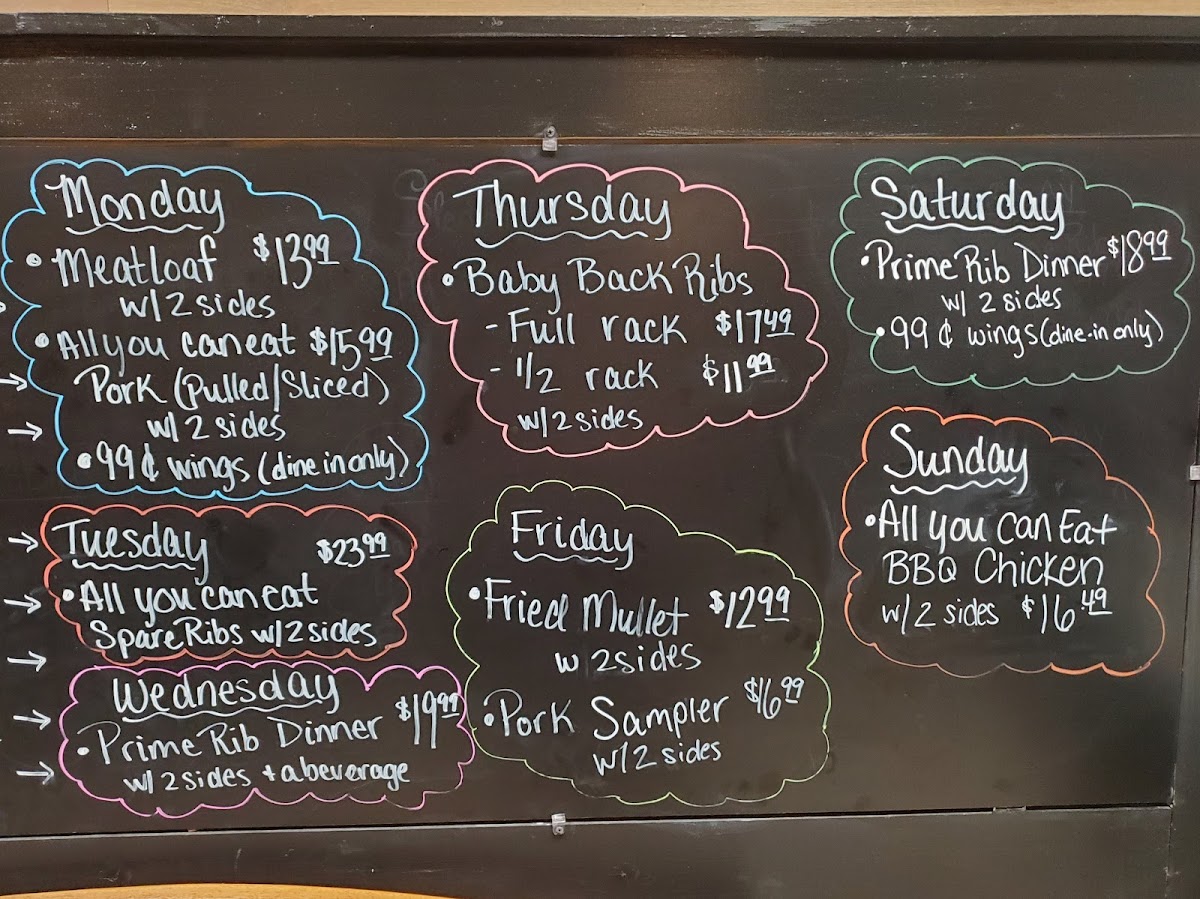 Monday
• Meatloaf $13.99
w/ 2 sides
• All you can eat $15.99
Pork (Pulled/Sliced)
w/ 2 sides
• 99¢ wings (dine in only)
Tuesday $23.99
• All you can eat
Spare Ribs w/ 2 sides
Wednesday
• Prime Rib Dinner $19.99
w/ 2 sides + a beverage
Thursday
• Baby Back Ribs
- Full rack $17.49
- 1/2 rack $11.99
w/ 2 sides
Friday
• Fried Mullet $12.99
w 2 sides
• Pork Sampler $16.99
w/ 2 sides
Saturday
• Prime Rib Dinner $18.99
w/ 2 sides
• 99¢ wings (dine-in only)
Sunday
• All you Can Eat
BBQ Chicken
w/ 2 sides $16.49